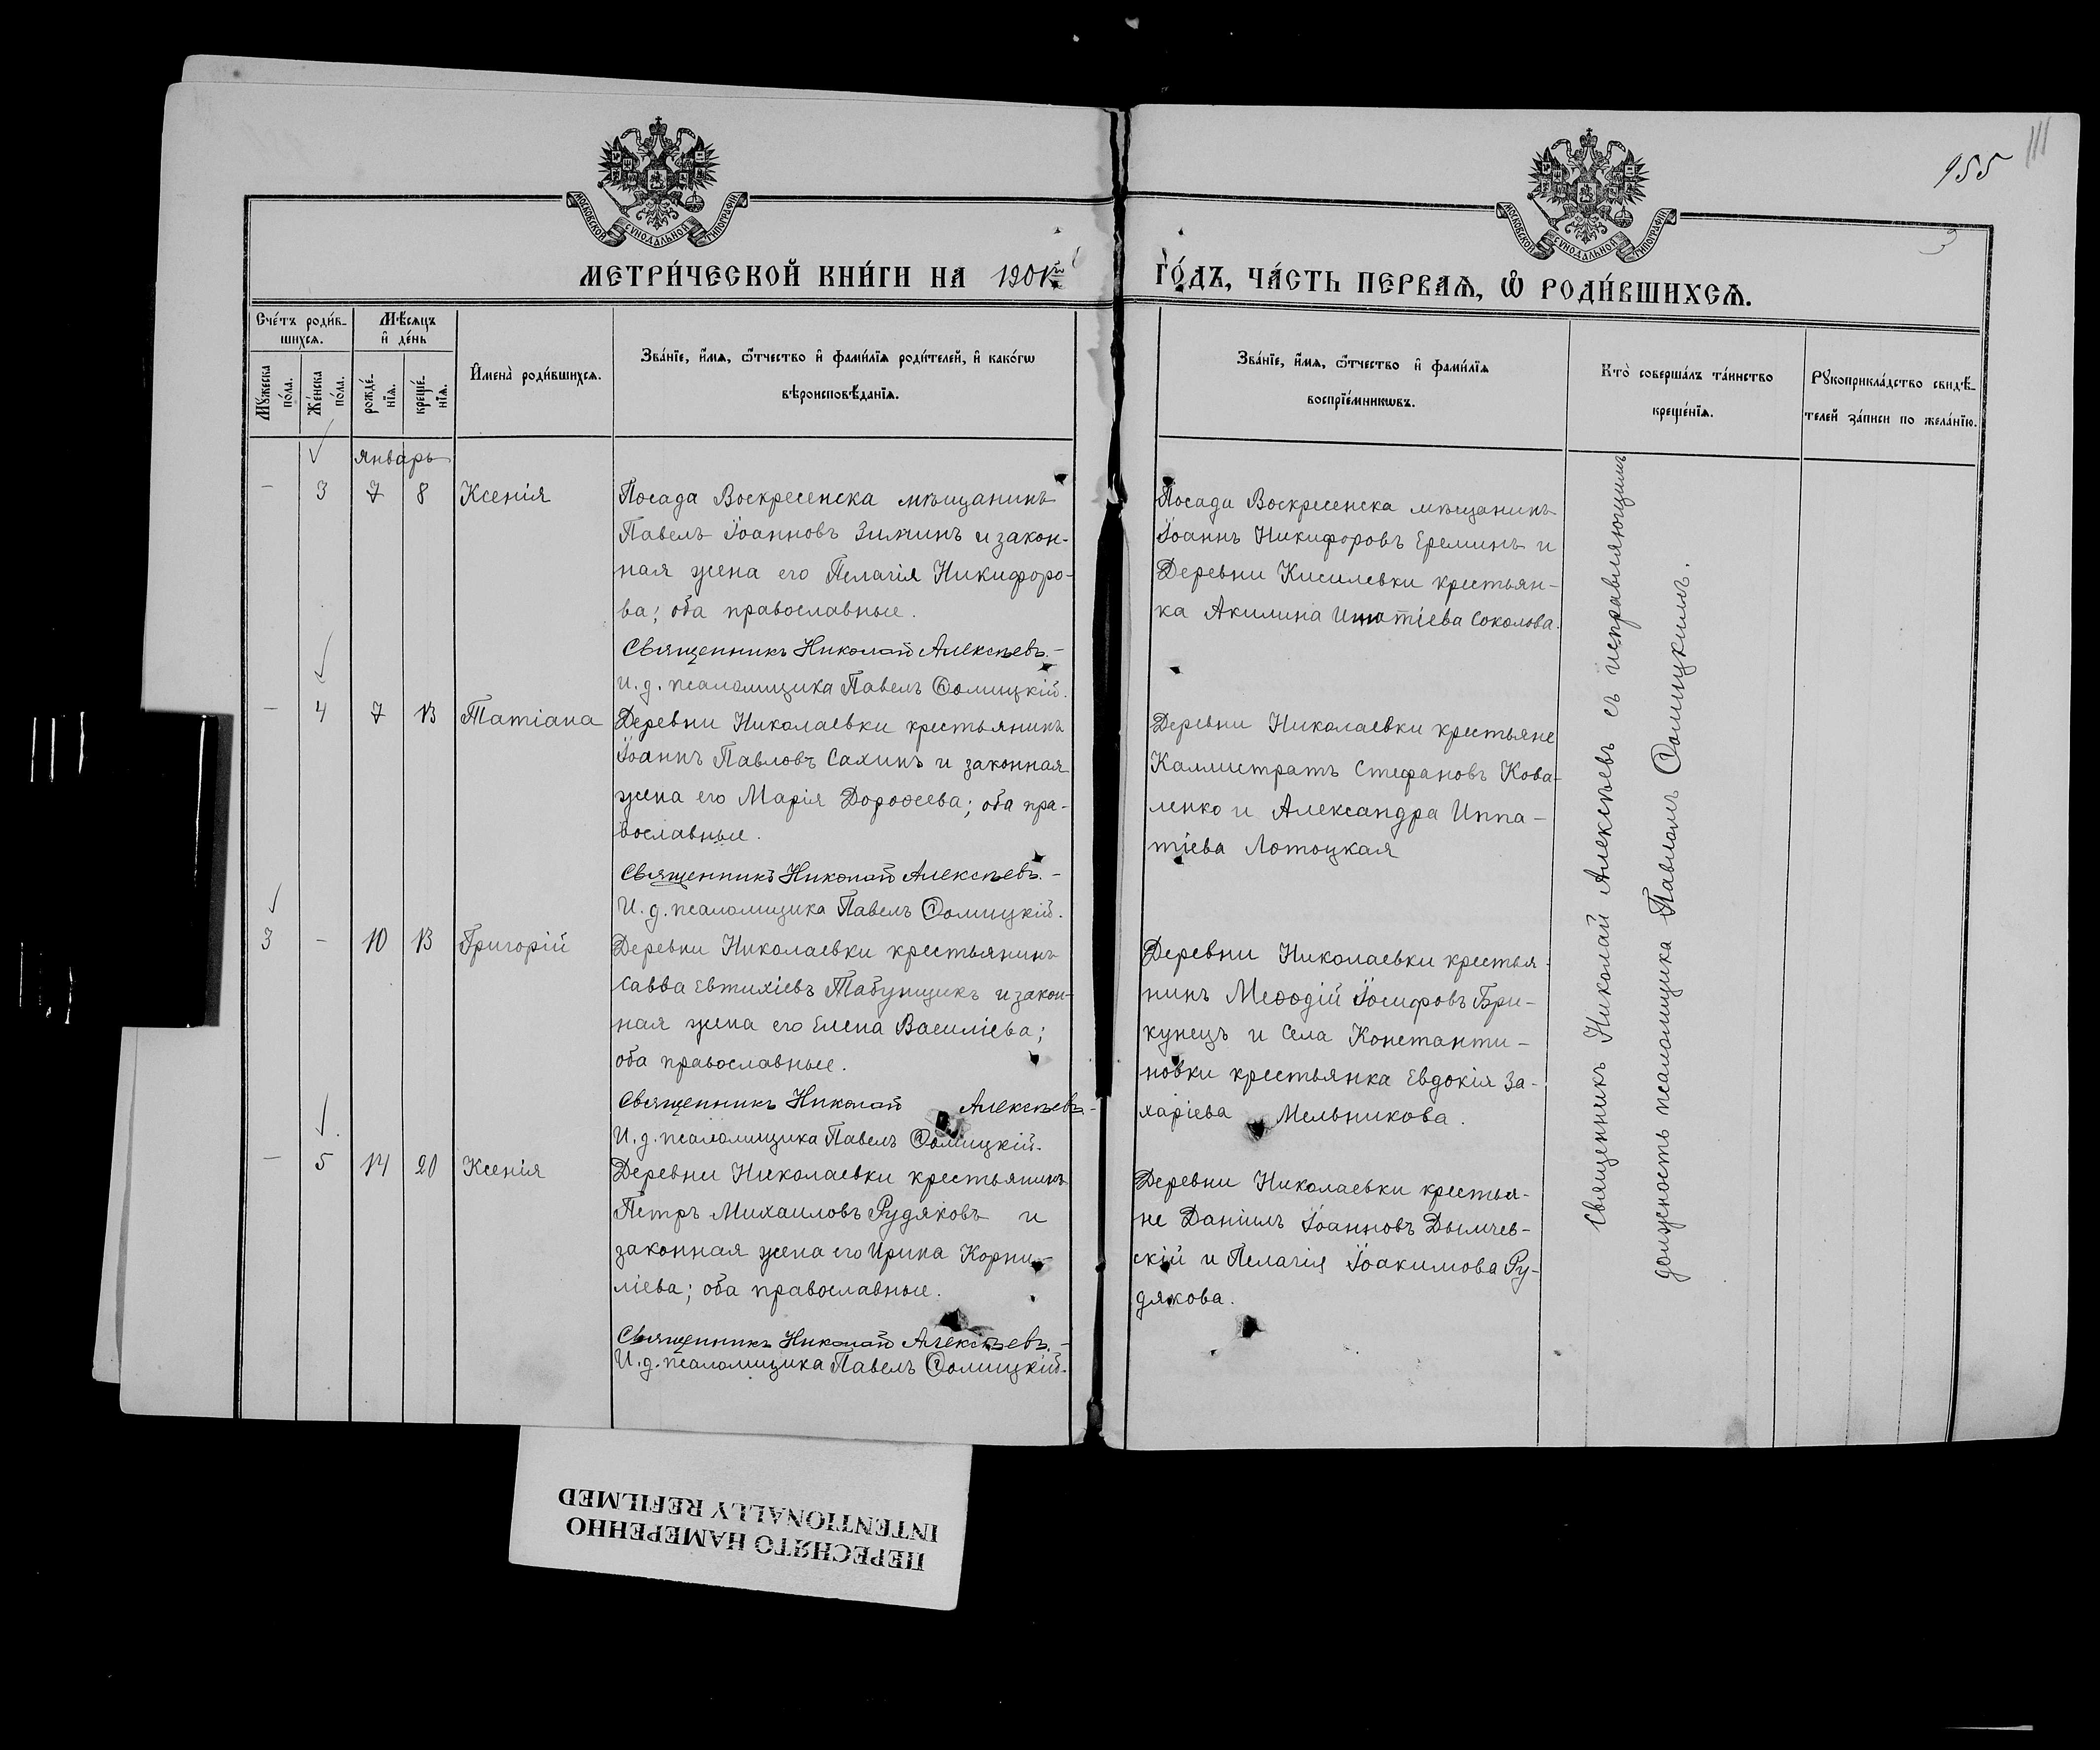 955
111
3
МОСКОВСКОЙ СѴНОДАЛЬНОЙ ТИПОГРАФІИ
МОСКОВСКОЙ СѴНОДАЛЬНОЙ ТИПОГРАФІИ
МЕТРИ́ЧЕСКОЙ КНИ́ГИ НА 1901й ГО́ДЪ, ЧА́СТЬ ПЕРВАѦ, Ѡ҆ РОДИ́ВШИХСѦ.
Сче́тъ роди́в-
шихсѧ.
Мꙋ́жеска
по́ла.
Же́нска
по́ла.
Мѣ́сѧцъ
и҆ де́нь
рожде́-
нїѧ.
креще́-
нїѧ.
И҆мена̀ роди́вшихсѧ.
Зва́нїе, и҆́мѧ, ѿтчество и҆ фами́лїѧ роди́телей, и҆ како́гѡ
вѣроисповѣ́данїѧ.
Зва́нїе, и҆́мѧ, ѿтчество и҆ фами́лїѧ
воспрїе́мникѡвъ.
Кто̀ соверша́лъ та́инство
креще́нїѧ.
Рꙋкоприкла́дство свидѣ́-
телей за́писи по жела́нїю.
Январь
- 3 7 8 Ксенія
Посада Воскресенска мѣщанинъ
Павелъ Іоанновъ Зиминъ и закон-
ная жена его Пелагія Никифоро-
ва; оба православные.
Священникъ Николай Алексѣевъ.-
И. д. псаломщика Павелъ Ѳомицкій.
Посада Воскресенска мѣщанинъ
Іоаннъ Никифоровъ Ереминъ и
Деревни Кисилевки крестьян-
ка Акилина Соколова.
- 4 7 13 Татіана
Деревни Николаевки крестьянинъ
Іоаннъ Павловъ Сахинъ и законная
жена его Марія Дороѳеева; оба пра-
вославные.
Священникъ Николай Алексѣевъ.-
И. д. псаломщика Павелъ Ѳомицкій.
Деревни Николаевки крестьяне
Каллистратъ Стефановъ Кова-
ленко и Александра Иппа-
тіева Лотоцкая
3 - 10 13 Григорій
Деревни Николаевки крестьянинъ
Савва Евтихіевъ Табунщикъ и закон-
ная жена его Елена Василіева;
оба православные.
Священникъ Николай Алексѣевъ.-
И. д. псаломщика Павелъ Ѳомицкій.
Деревни Николаевки крестья-
нинъ Меѳодій Іосифовъ Бри-
кунецъ и Села Константи-
новки крестьянка Евдокія За-
харіева Мельникова.
- 5 14 20 Ксенія
Деревни Николаевки крестьянинъ
Петръ Михаиловъ Рудяковъ и
законная жена его Ирина Корни-
ліева; оба православные.
Священникъ Николай Алексѣевъ.-
И. д. псаломщика Павелъ Ѳомицкій.
Деревни Николаевки крестья-
не Даніилъ Іоанновъ Дымчев-
скій и Пелагія Іоакимова Ру-
дякова.
Священникъ Николай Алексѣевъ съ исправляющимъ
должность псаломщика Павломъ Ѳомицкимъ.
ПЕРЕСНЯТО НАМЕРЕННО
INTENTIONALLY REFILMED